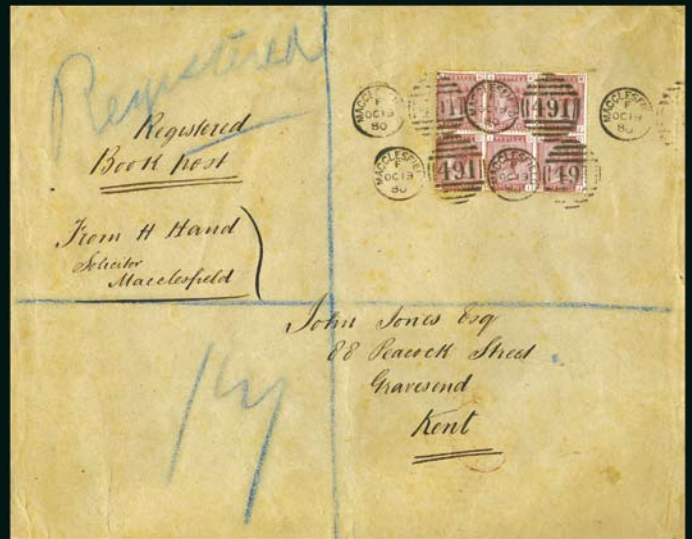 Registered
Registered
Book post
From H Hand
Solicitor
Macclesfield
MACCLESFIELD
F
OC 19
80
491
MACCLESFIELD
OC 19
80
491
MACCLESFIELD
F
OC 19
80
MACCLESFIELD
F
OC 19
80
491
MACCLESFIELD
F
OC 19
80
49
John Jones Esq
88 Peacock Street
Gravesend
Kent